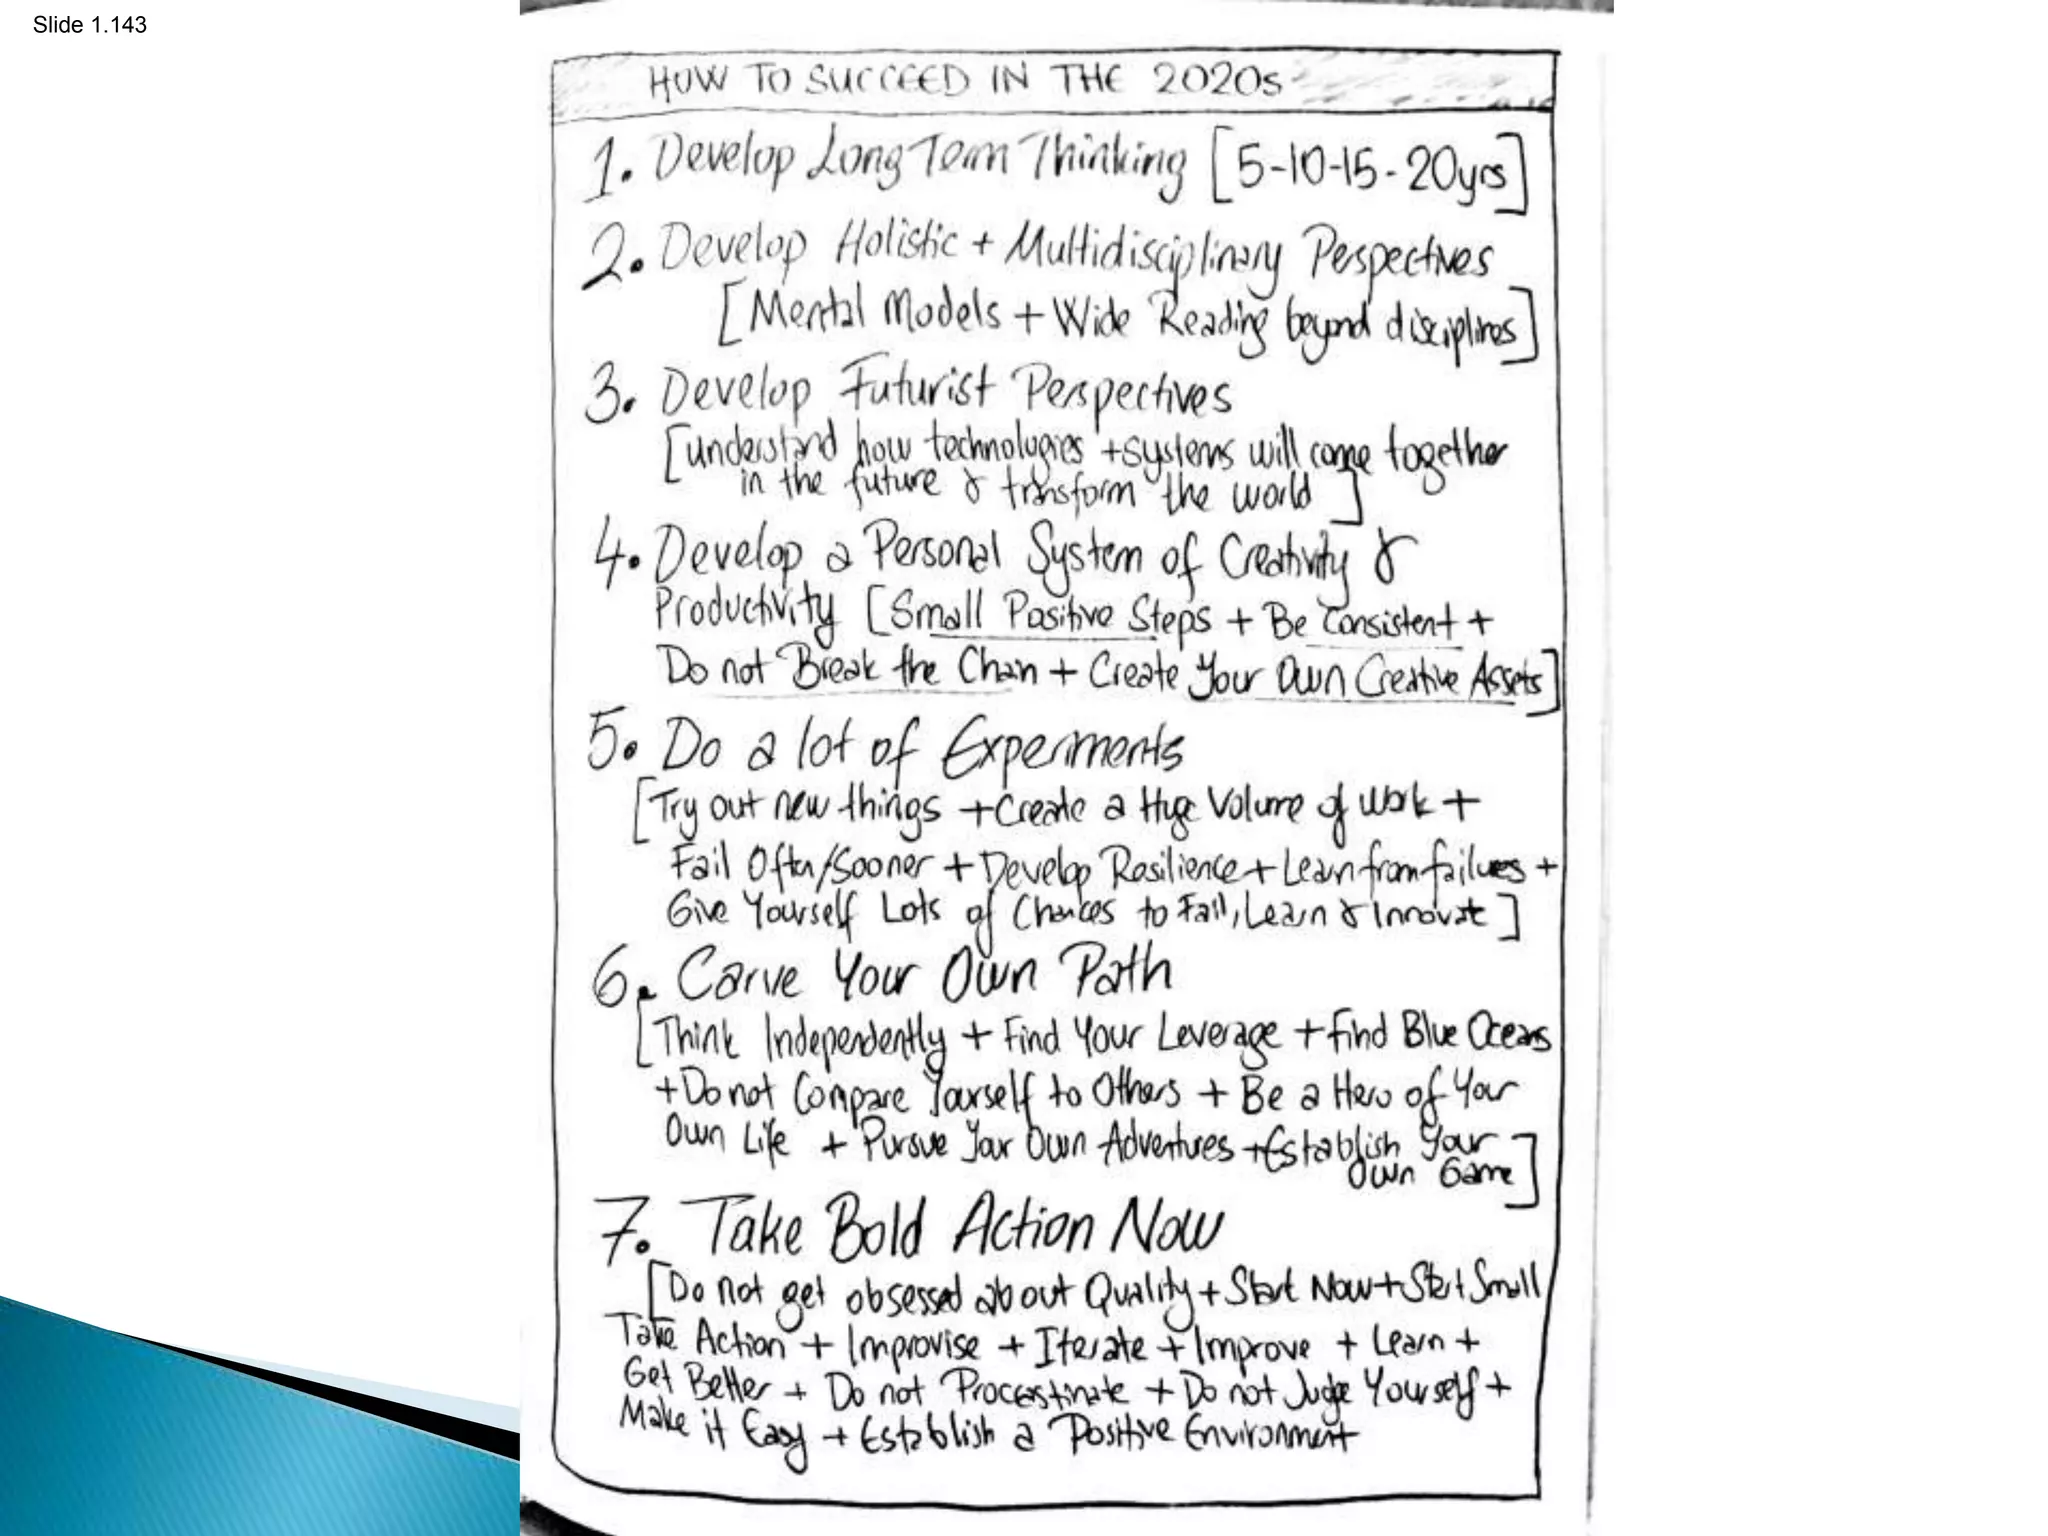 Slide 1.143
HOW TO SUCCEED IN THE 2020s
1. Develop Long Term Thinking [5-10-15-20yrs]
2. Develop Holistic + Multidisciplinary Perspectives
[Mental Models + Wide Reading beyond disciplines]
3. Develop Futurist Perspectives
[understand how technologies + systems will come together
in the future & transform the world]
4. Develop a Personal System of Creativity &
Productivity [Small Positive Steps + Be Consistent +
Do not Break the Chain + Create Your Own Creative Assets]
5. Do a lot of Experiments
[Try out new things + Create a Huge Volume of Work +
Fail Often/Sooner + Develop Resilience + Learn from failures +
Give Yourself Lots of Chances to Fail, Learn & Innovate]
6. Carve Your Own Path
[Think Independently + Find Your Leverage + Find Blue Oceans
+ Do not Compare Yourself to Others + Be a Hero of Your
Own Life + Pursue Your Own Adventures + Establish Your
Own Game]
7. Take Bold Action Now
[Do not get obsessed about Quality + Start Now + Start Small
Take Action + Improvise + Iterate + Improve + Learn +
Get Better + Do not Procrastinate + Do not Judge Yourself +
Make it Easy + Establish a Positive Environment